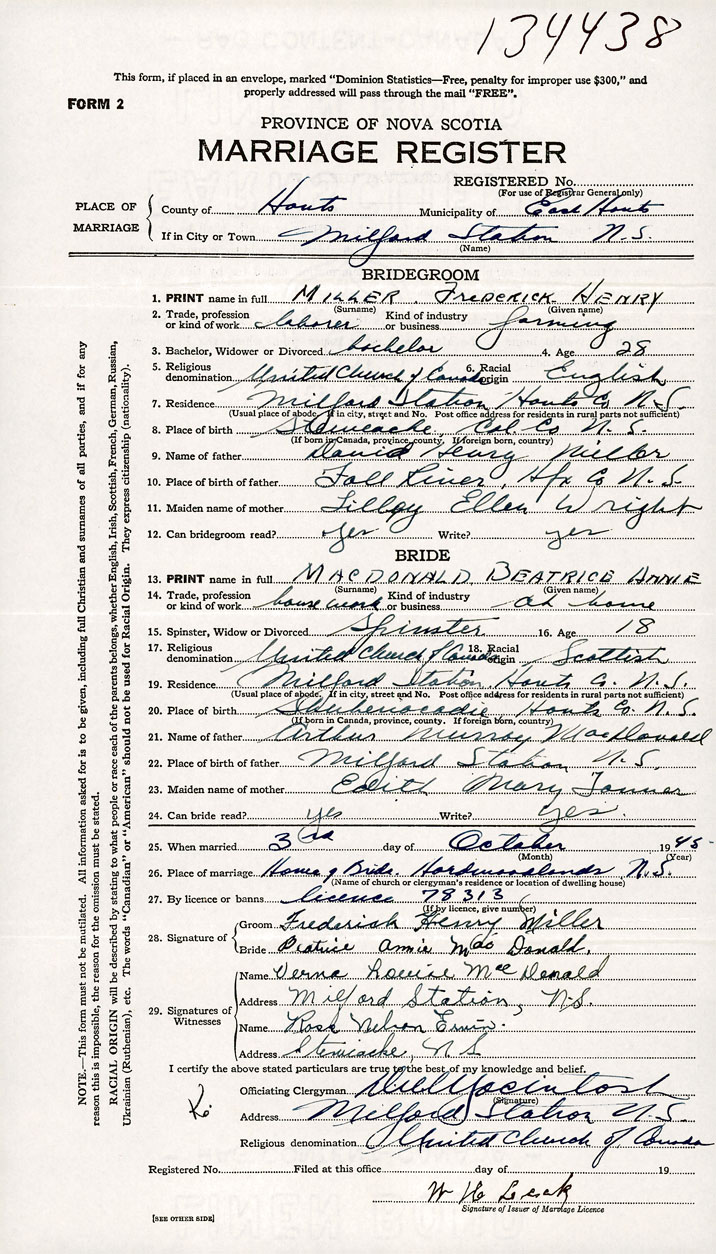 134438
This form, if placed in an envelope, marked "Dominion Statistics—Free, penalty for improper use $300," and
properly addressed will pass through the mail "FREE".
FORM 2
PROVINCE OF NOVA SCOTIA
MARRIAGE REGISTER
REGISTERED No.
(For use of Registrar General only)
PLACE OF MARRIAGE
County of Hants Municipality of East Hants
If in City or Town Milford Station N.S.
(Name)
BRIDEGROOM
1. PRINT name in full MILLER, FREDERICK HENRY
(Surname) (Given name)
2. Trade, profession or kind of work laborer Kind of industry or business farming
3. Bachelor, Widower or Divorced bachelor 4. Age 28
5. Religious denomination United Church of Canada 6. Racial origin English
7. Residence Milford Station Hants Co N.S.
(Usual place of abode. If in city, street and No. Post office address for residents in rural parts not sufficient)
8. Place of birth Stewiacke, Col Co N.S.
(If born in Canada, province, county. If foreign born, country)
9. Name of father David Henry Miller
10. Place of birth of father Fall River, Hfx Co N.S.
11. Maiden name of mother Ellen Wright
12. Can bridegroom read? yes Write? yes
BRIDE
13. PRINT name in full MACDONALD, BEATRICE ANNIE
(Surname) (Given name)
14. Trade, profession or kind of work housework Kind of industry or business at home
15. Spinster, Widow or Divorced Spinster 16. Age 18
17. Religious denomination United Church of Canada 18. Racial origin Scottish
19. Residence Milford Station, Hants Co. N.S.
(Usual place of abode. If in city, street and No. Post office address for residents in rural parts not sufficient)
20. Place of birth Shubenacadie Hants Co. N.S.
(If born in Canada, province, county. If foreign born, country)
21. Name of father Arthur Murray MacDonald
22. Place of birth of father Milford Station N.S.
23. Maiden name of mother Edith Mary
24. Can bride read? yes Write? yes.
25. When married 3rd day of October 1945
(Month) (Year)
26. Place of marriage Home of Bride. Hardwoodlands, N.S.
(Name of church or clergyman's residence or location of dwelling house)
27. By licence or banns licence 78313
(If by licence, give number)
28. Signature of
Groom Frederick Henry Miller
Bride Beatrice Annie MacDonald.
29. Signatures of Witnesses
Name Verna Louise MacDonald
Address Milford Station, N.S.
Name Ross Nelson
Address Stewiacke, N.S
I certify the above stated particulars are true to the best of my knowledge and belief.
Officiating Clergyman
(Signature)
Address Milford Station N.S.
Religious denomination United Church of Canada
Registered No. Filed at this office day of 19
W H
Signature of Issuer of Marriage Licence
[SEE OTHER SIDE]
NOTE.—This form must not be mutilated. All information asked for is to be given, including full Christian and surnames of all parties, and if for any
reason this is impossible, the reason for the omission must be stated.
RACIAL ORIGIN will be described by stating to what people or race each of the parents belongs, whether English, Irish, Scottish, French, German, Russian,
Ukrainian (Ruthenian), etc. The words "Canadian" or "American" should not be used for Racial Origin. They express citizenship (nationality).